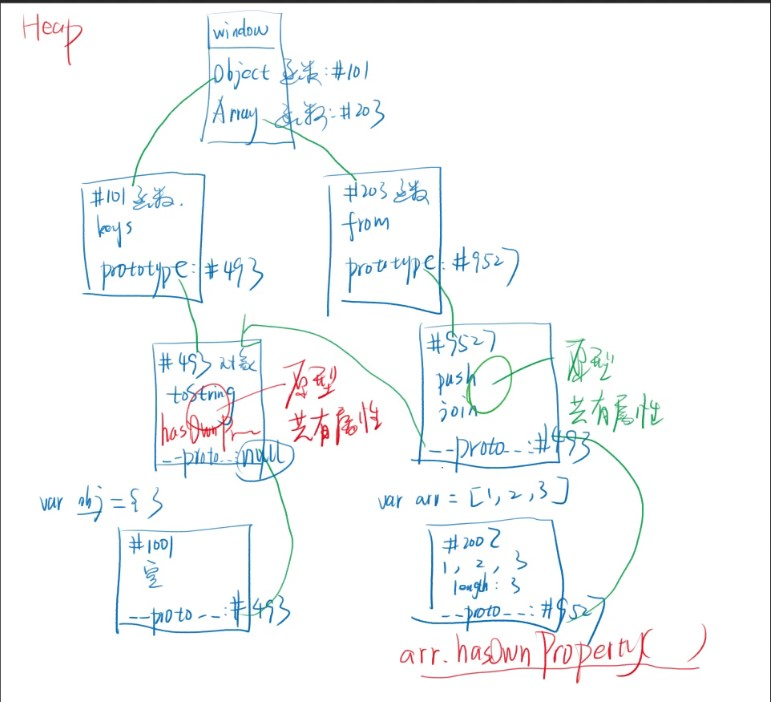 Heap
window
Object 函数:#101
Array 函数:#203
#101 函数.
keys
prototype:#493
#203 函数
from
prototype:#9527
#493 对象
toString
hasOwnP
__proto__:null
原型
共有属性
#9527
push
join
__proto__:#493
原型
共有属性
var obj = { }
#1001
空
__proto__:#493
var arr = [1,2,3]
#2002
1, 2, 3
length: 3
__proto__:#9527
arr.hasOwnProperty( )